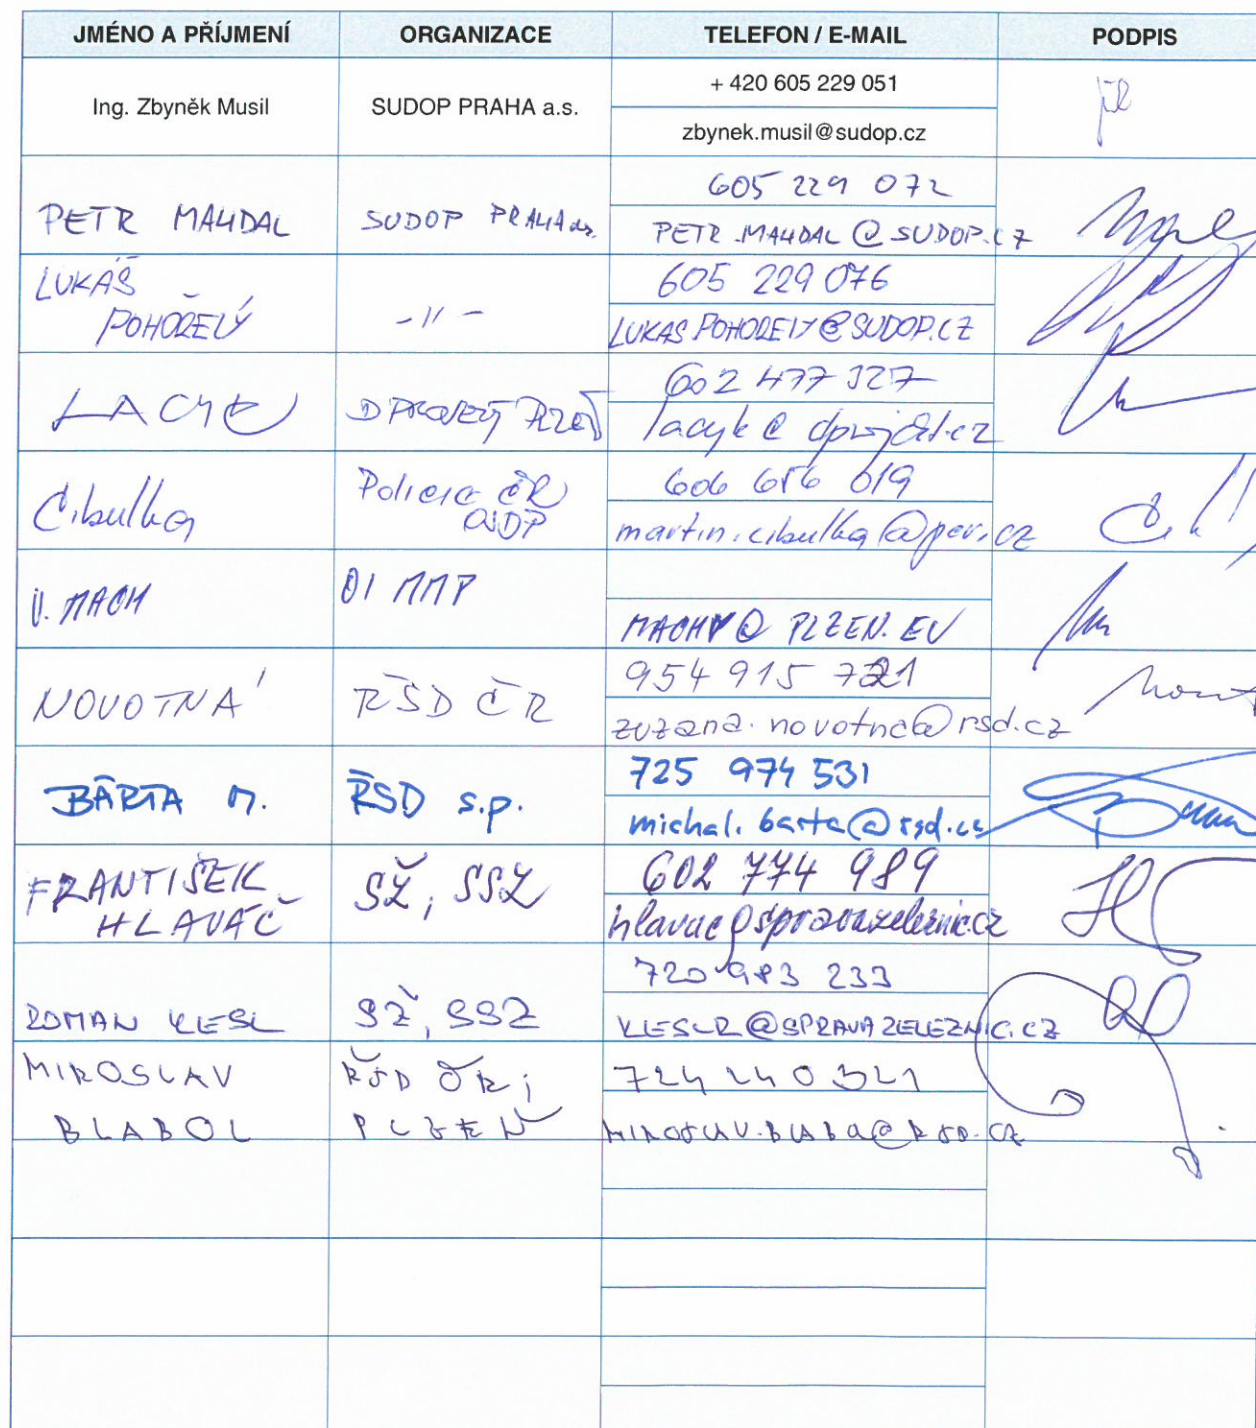 JMÉNO A PŘÍJMENÍ ORGANIZACE TELEFON / E-MAIL PODPIS
Ing. Zbyněk Musil SUDOP PRAHA a.s. + 420 605 229 051
zbynek.musil@sudop.cz
PETR MAHDAL SUDOP PRAHA a.s. 605 229 072
PETR.MAHDAL@SUDOP.CZ
LUKÁŠ
POHOŘELÝ -11- 605 229 076
LUKAS.POHORELY@SUDOP.CZ
602 477 327
Cibulka Policie ČR
martin.cibulka@pcr.cz
V. MACH OI MMP
MACHV@PLZEN.EU
NOVOTNÁ ŘSD ČR 954 915 721
zuzana.novotna@rsd.cz
BÁRTA M. ŘSD s.p. 725 974 531
michal.barta@rsd.cz
FRANTIŠEK
HLAVÁČ SŽ, SSZ 602 774 989
hlavac@spravazeleznic.cz
ROMAN KESL SŽ, SSZ 720 983 233
KESLR@SPRAVAZELEZNIC.CZ
MIROSLAV ŘSD ČR; 724 240 321
BLABOL PLZEŇ MIROSLAV.BLABOL@RSD.CZ